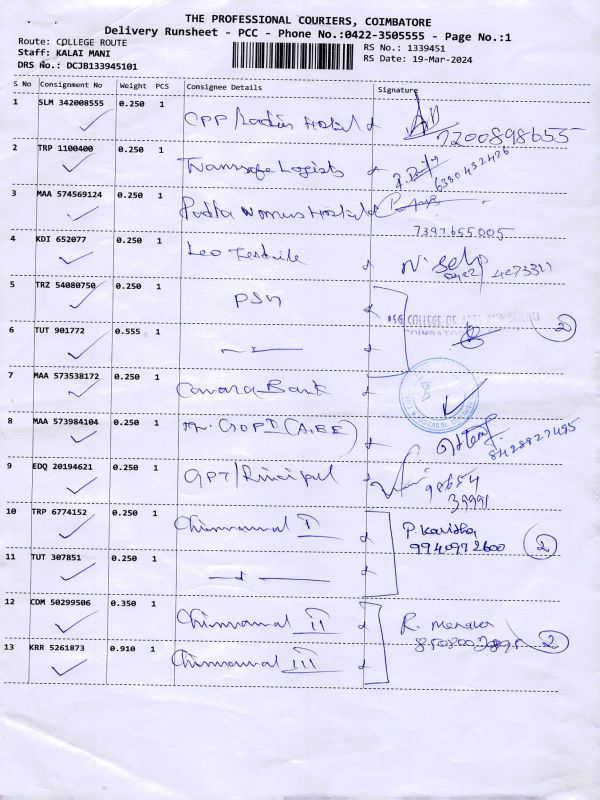 THE PROFESSIONAL COURIERS, COIMBATORE
Delivery Runsheet - PCC - Phone No.:0422-3505555 - Page No.:1
Route: COLLEGE ROUTE
RS No.: 1339451
Staff: KALAI MANI
RS Date: 19-Mar-2024
DRS No.: DCJB133945101
S No Consignment No Weight PCS Consignee Details Signature
1 SLM 342008555 0.250 1 CPP/Ladies Hostel
7200898655
2 TRP 1100400 0.250 1 Transafe Logists
6380432426
3 MAA 574569124 0.250 1 Hostel
7397655005
4 KDI 652077 0.250 1 Leo Textile
5 TRZ 54080750 0.250 1 PSG
PSG COLLEGE OF ARTS AND
COIMBATORE
2
6 TUT 901772 0.555 1
7 MAA 573538172 0.250 1 Canara Bank
8 MAA 573984104 0.250 1
8428827495
9 EDQ 20194621 0.250 1 GPT/Principal
98654
39991
10 TRP 6774152 0.250 1 Chinnamal I
P Kavitha
9940972600
2
11 TUT 307851 0.250 1
12 CDM 50299506 0.350 1 Chinnamal II
R.
2
13 KRR 5261873 0.910 1 Chinnamal III